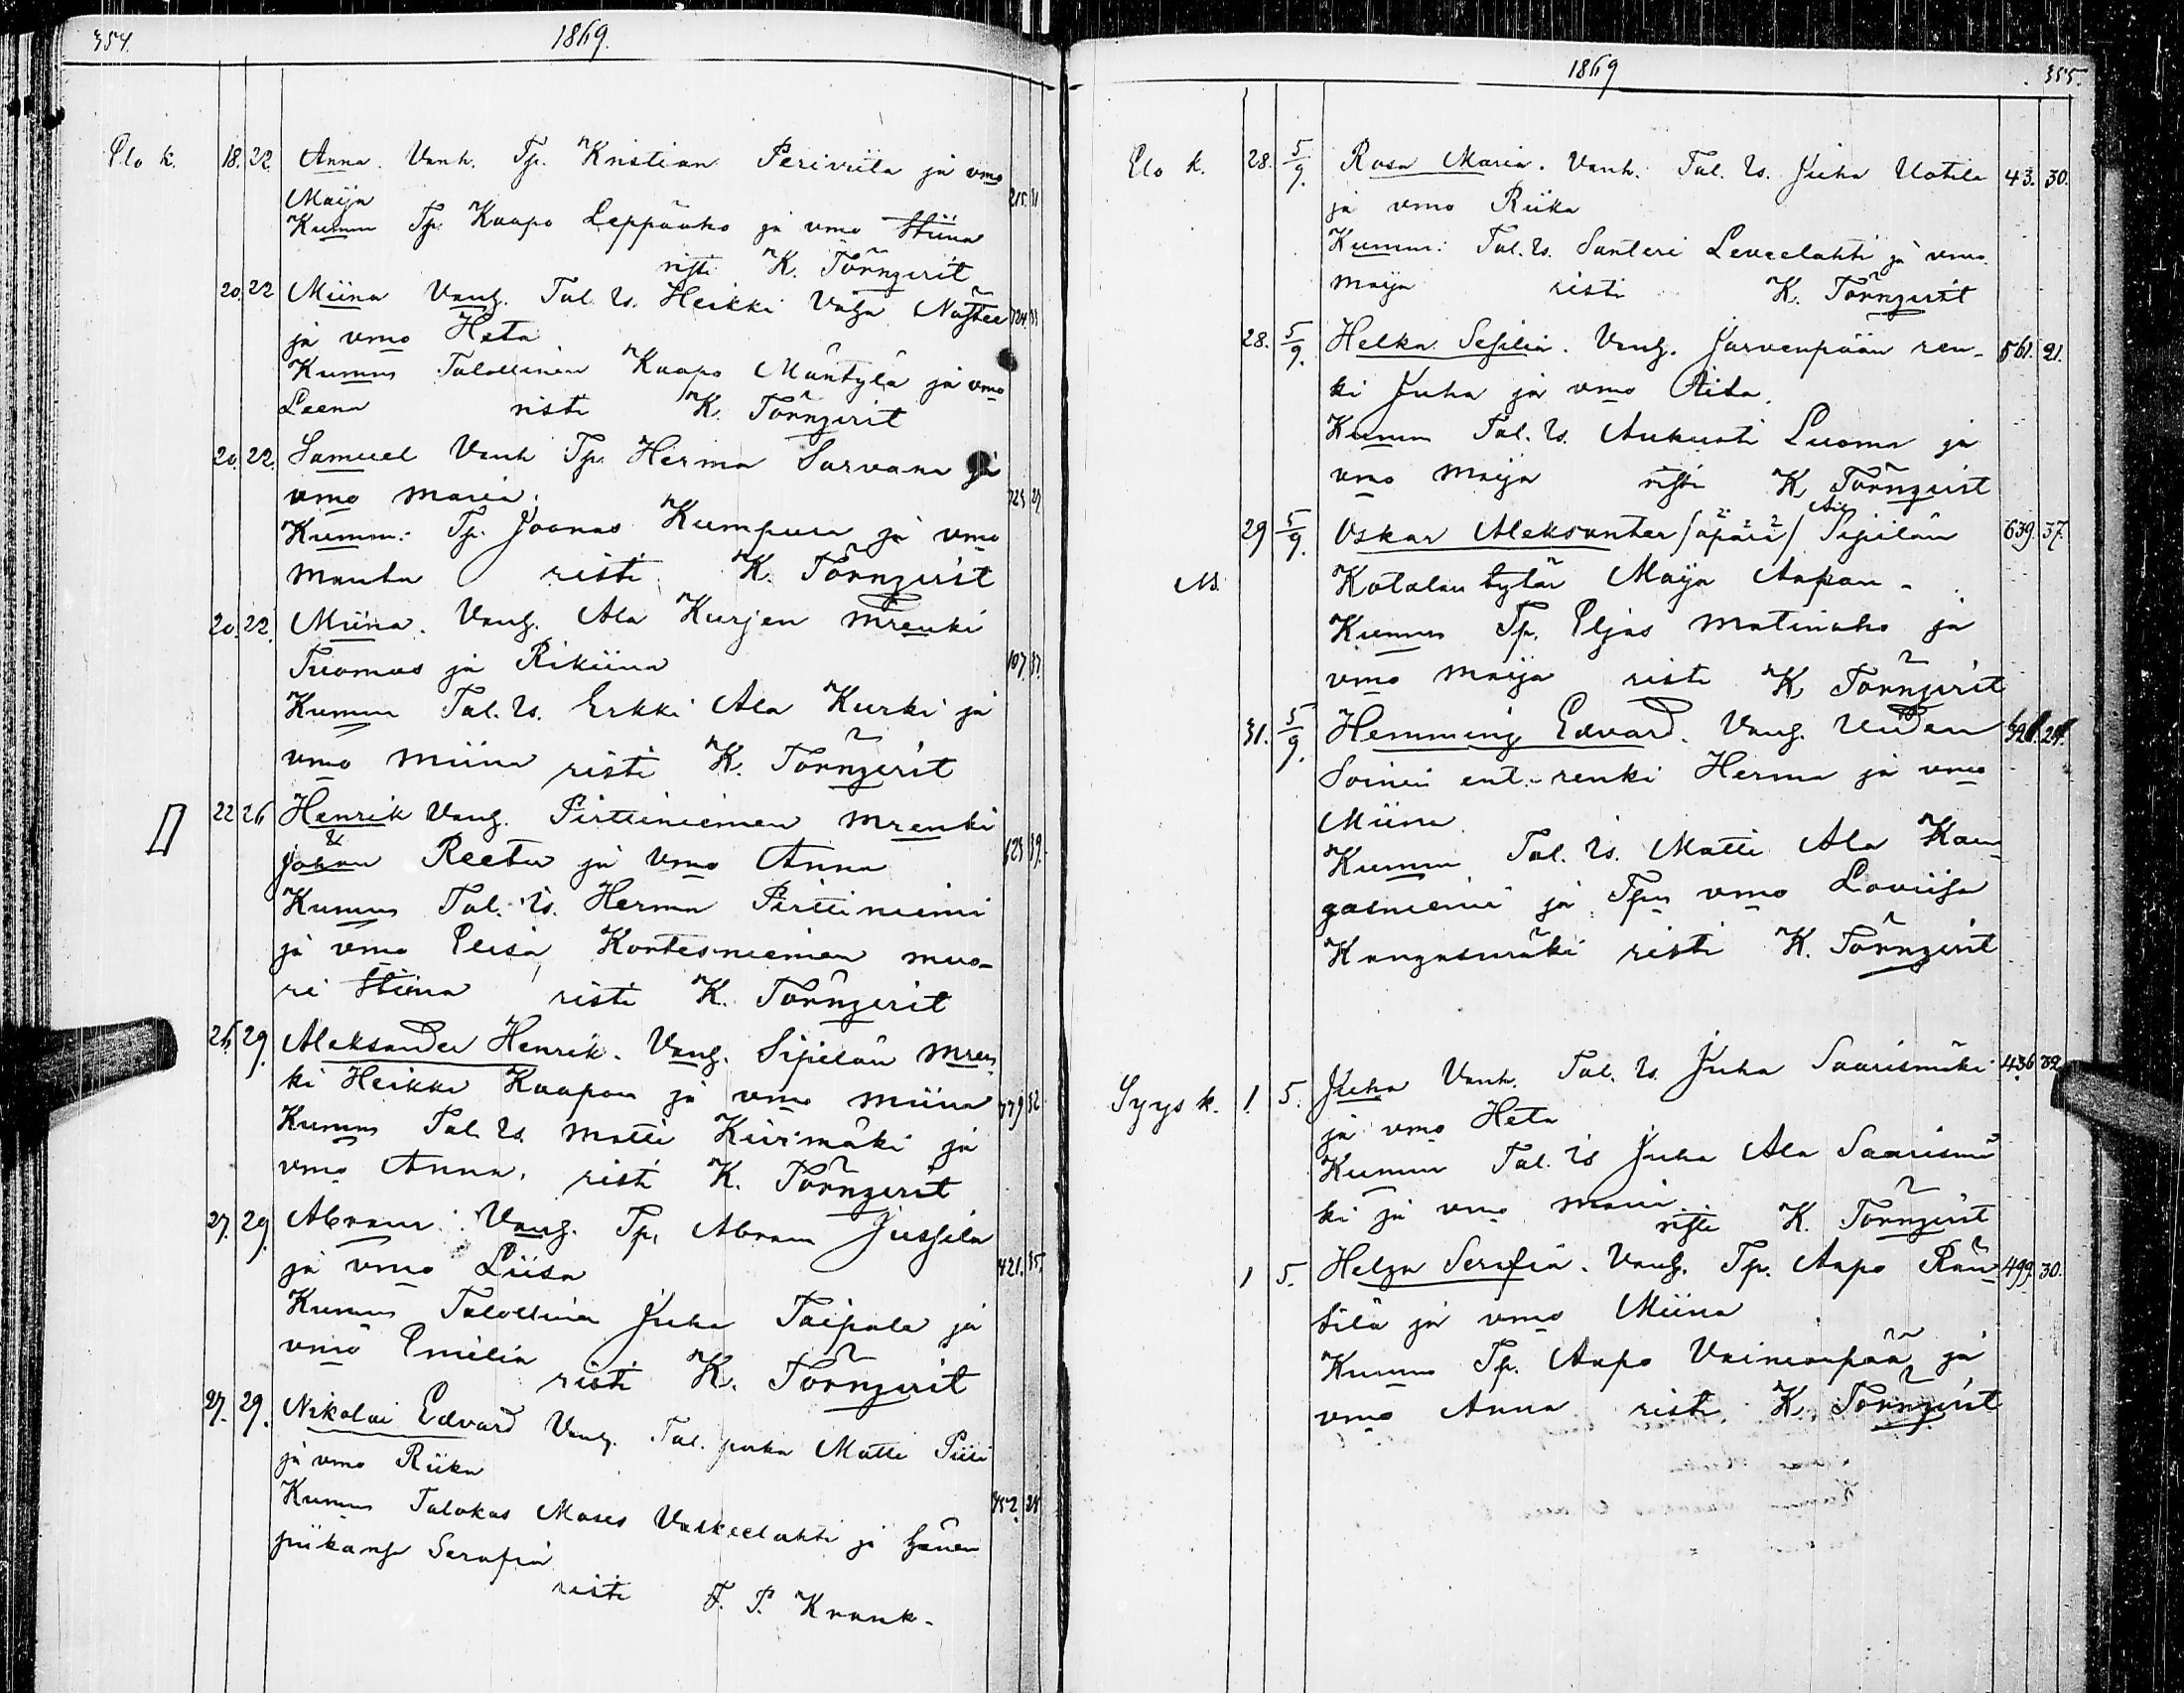 354. 1869.
Elo k. 18. 22. Anna. Vanh. Tp. Kristian Periviita ja vmo
Maija
Kumm Tp. Kaapo Leppäaho ja vmo Stiina
risti K. Törnqvist
20. 22 Miina Vanh. Tal. Us. Heikki
ja vmo Heta
Kumm Talollinen Kaapo Mäntylä ja vmo
Leena risti K. Törnqvist
20. 22. Samuel Vanh Tp. Herma Sarvana ja
vmo Maria.
Kumm: Tp. Joonas Kumpuu ja vmo
Manta risti K. Törnqvist
20. 22. Miina. Vanh. Ala Kurjen mrenki
Tuomas ja Rikiina 107.
Kumm Tal. Us. Erkki Ala Kurki ja
vmo Miina risti K. Törnqvist
22 26 Henrik Vanh. Pirttiniemen mrenki
Johan Reetu ja vmo Anna
Kumm Tal. Us. Herma Pirttiniemi
ja vmo Elisa, Kontesniemen muo-
ri Stiina risti K. Törnqvist
26. 29. Aleksander Henrik. Vanh. Sipilän mren
ki Heikki Kaapon ja vmo Miina
Kumm Tal. Us. Matti Kiirimäki ja
vmo Anna. risti K. Törnqvist
27. 29. Abram. Vanh. Tp. Abram Jussila
ja vmo Liisa 421. 35.
Kumm Talollinen Juha Taipale ja
vmo Emilia risti K. Törnqvist
27. 29. Nikolai Edvard Vanh. Tal. poika Matti Piili
ja vmo Riika
Kumm Talokas Moses Vaskeelahti ja hänen
piikansa Serafia
risti F. P. Krank.
1869 355.
Elo k. 28. 5/9. Rosa Maria. Vanh. Tal. Us. Juha Uotila 43. 30.
ja vmo Riika
Kumm: Tal. Us. Santeri Leveelahti ja vmo
Maija risti K. Törnqvist
28. 5/9. Helka Sesilia. Vanh. Jarvenpään ren- 561. 21.
ki Juha ja vmo
Kumm Tal. Us. Aukusti Luoma ja
vmo Maija risti K. Törnqvist
29 5/9. Oskar Aleksanter /äpärä/ Sipilän 639. 37.
Kotolan tytär Maija Aapan.
Kumm Tp. Eljas Matinaho ja
vmo Maija risti K. Törnqvist
31. 5/9. Hemming Edvard. Vanh. Uuden
Soinin ent. renki Herma ja vmo
Miina
Kumm Tal. Us. Matti Ala Kan
gasniemi ja Tpn vmo Loviisa
Kangasmäki risti K. Törnqvist
Syys k. 1. 5. Juha Vanh. Tal. Us. Juha Saarismäki 436 32
ja vmo Heta
Kumm Tal. Us Juha Ala Saarismä
ki ja vmo Maria
risti K. Törnqvist
1 5. Helga Serafia. Vanh. Tp. Aapo Rän 499. 30.
tilä ja vmo Miina
Kumm Tp. Aapo Vainionpää ja
vmo Anna risti K. Törnqvist